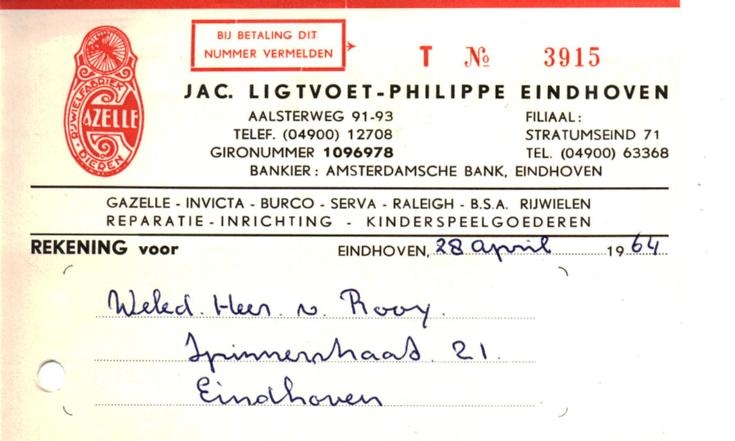 BIJ BETALING DIT
NUMMER VERMELDEN
T № 3915
RIJWIELFABRIEK
GAZELLE
DIEREN
JAC. LIGTVOET-PHILIPPE EINDHOVEN
AALSTERWEG 91-93 FILIAAL:
TELEF. (04900) 12708 STRATUMSEIND 71
GIRONUMMER 1096978 TEL. (04900) 63368
BANKIER: AMSTERDAMSCHE BANK, EINDHOVEN
GAZELLE - INVICTA - BURCO - SERVA - RALEIGH - B.S.A. RIJWIELEN
REPARATIE-INRICHTING - KINDERSPEELGOEDEREN
REKENING voor EINDHOVEN, 28 april 1964
Weled. Heer v. Rooy.
Spinnerstraat 21.
Eindhoven